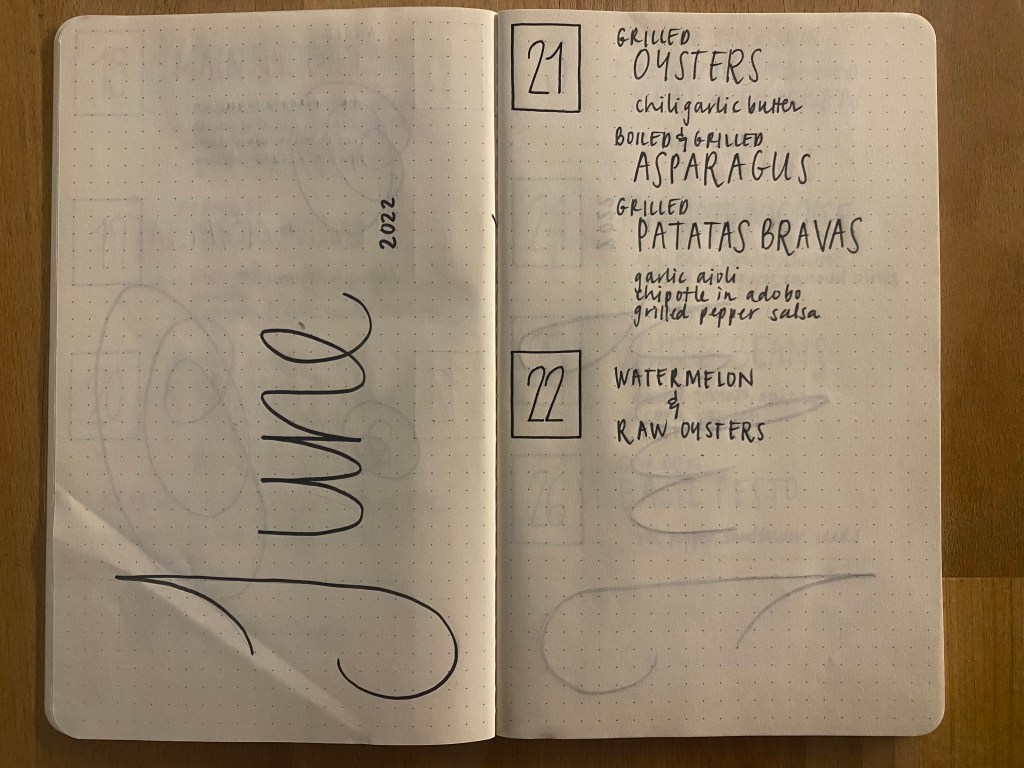 June
2022
21
GRILLED
OYSTERS
chili garlic butter
BOILED & GRILLED
ASPARAGUS
GRILLED
PATATAS BRAVAS
garlic aioli
chipotle in adobo
grilled pepper salsa
22
WATERMELON
&
RAW OYSTERS